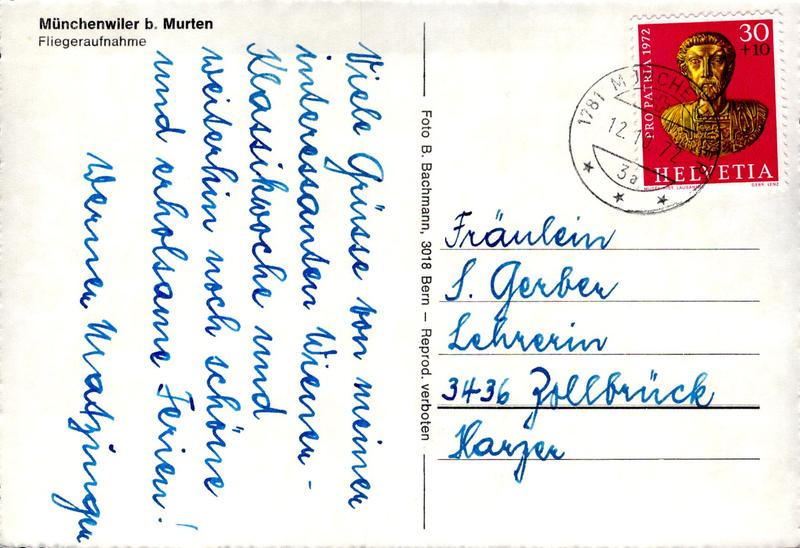 Münchenwiler b. Murten
Fliegeraufnahme
Viele Grüsse von meiner
interessanten Wiener-
Klassikwoche und
weiterhin noch schöne
und erholsame Ferien!
Werner
Foto B. Bachmann, 3018 Bern – Reprod. verboten
PRO PATRIA 1972
30
+10
HELVETIA
1781 MÜNCHE
12.10.72
3a
Fräulein
S. Gerber
Lehrerin
3436 Zollbrück
Harzer